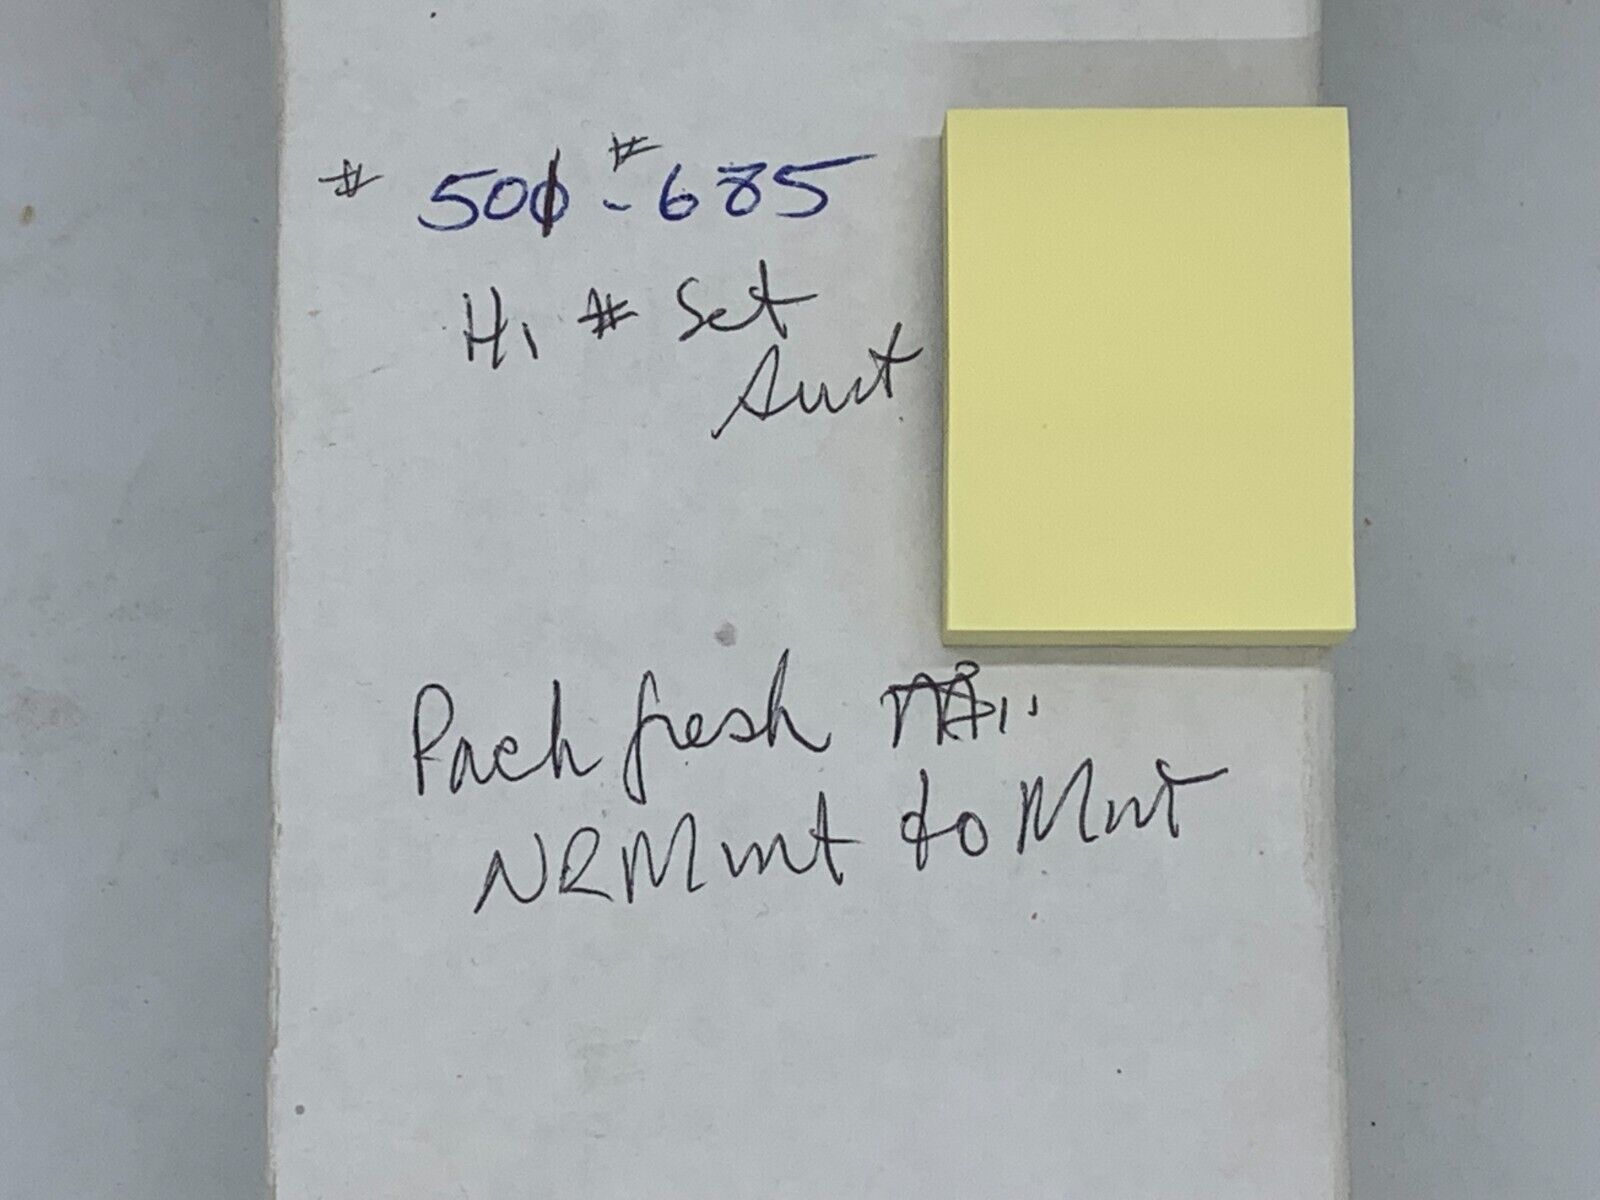 # 501 - # 685
Hi # Set
Pack fresh
NRMint to Mint